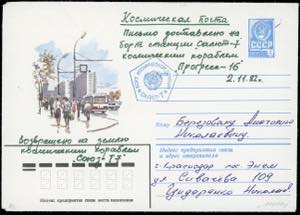 Космическая почта
Письмо доставлено на
борт станции Салют-7
космическим кораблем
Прогресс-16
2.11.82г.
СССР
Возвращено на землю
космическим кораблем
"Союз Т7"
Куда
Березовому Анатолию
Николаевичу
Индекс предприятия связи
и адрес отправителя
г. Краснодар пос. Энем
ул. Сивачева 109
Сидоренко Николай
Индекс предприятия связи места назначения